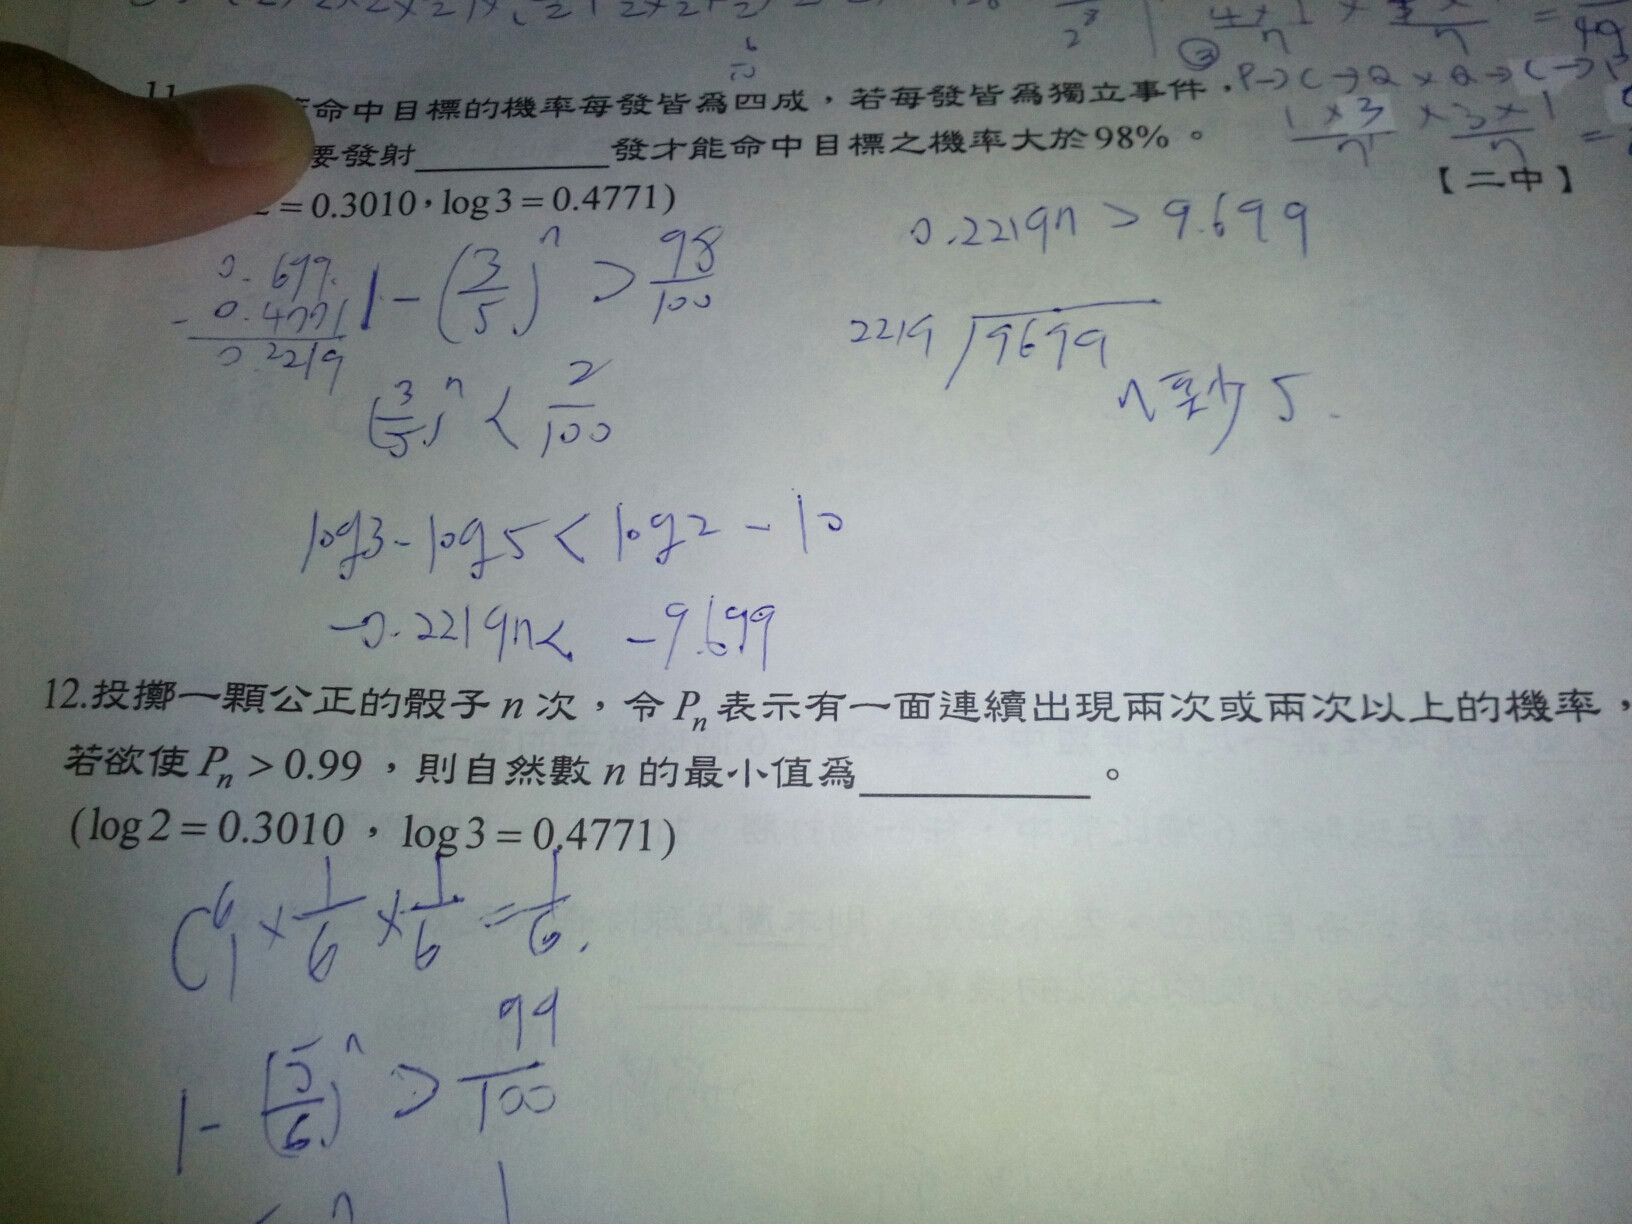 ③ P→C→Q×Q→C→P
11
命中目標的機率每發皆為四成，若每發皆為獨立事件，
要發射________發才能命中目標之機率大於98%。
【二中】
2=0.3010，log3=0.4771)
1×3/n × 3×1/n =
0.699
-0.4771
0.2219
1-(3/5)^n > 98/100
(3/5)^n < 2/100
log3-log5<log2-10
-0.2219n< -9.699
0.2219n > 9.699
2219 / 9699
n至少 5.
12.投擲一顆公正的骰子 n 次，令 Pn 表示有一面連續出現兩次或兩次以上的機率，
若欲使 Pn > 0.99，則自然數 n 的最小值為________。
(log2=0.3010，log3=0.4771)
C^6_1 × 1/6 × 1/6 = 1/6.
1-(5/6)^n > 99/100